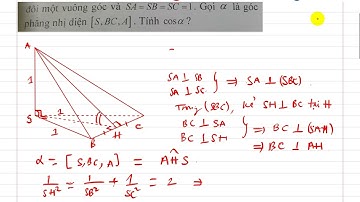 đôi một vuông góc và SA = SB = SC = 1. Gọi α là góc
phẳng nhị diện [S, BC, A]. Tính cosα ?
A
1
S
1
1
B
H
C
SA ⊥ SB
SA ⊥ SC
} ⇒ SA ⊥ (SBC)
Trong (SBC), kẻ SH ⊥ BC tại H
BC ⊥ SA
BC ⊥ SH
} ⇒ BC ⊥ (SAH)
⇒ BC ⊥ AH
α = [S, BC, A] = AĤS
1/SH² = 1/SB² + 1/SC² = 2 ⇒